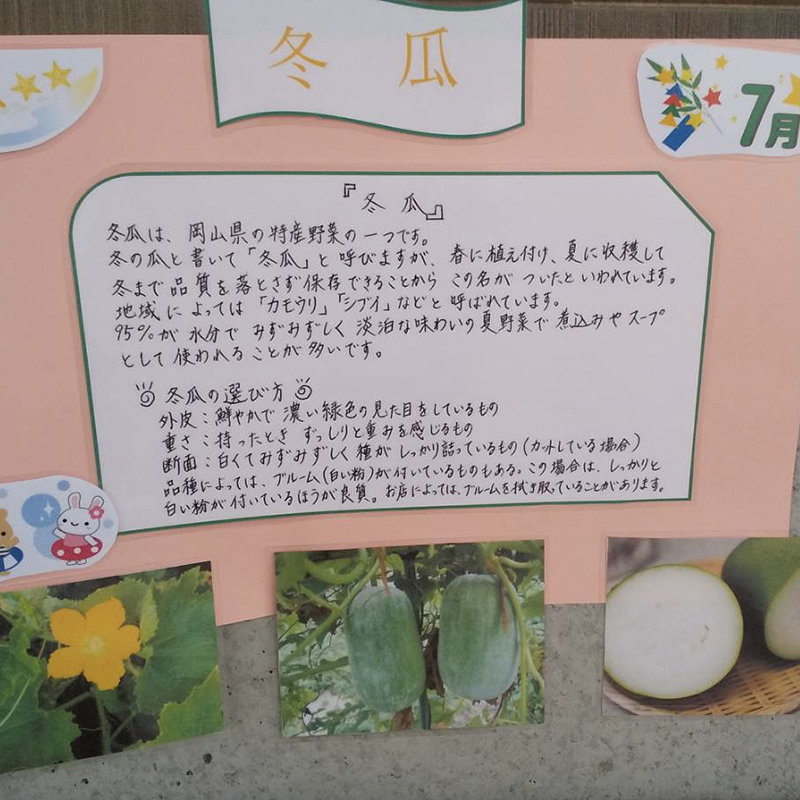 冬瓜
7月
『冬瓜』
冬瓜は、岡山県の特産野菜の一つです。
冬の瓜と書いて「冬瓜」と呼びますが、春に植え付け、夏に収穫して
冬まで品質を落とさず保存できることからこの名がついたといわれています。
地域によっては「カモウリ」「シブイ」などと呼ばれています。
95%が水分でみずみずしく淡泊な味わいの夏野菜で煮込みやスープ
として使われることが多いです。
冬瓜の選び方
外皮:鮮やかで濃い緑色の見た目をしているもの
重さ:持ったときずっしりと重みを感じるもの
断面:白くてみずみずしく種がしっかり詰っているもの(カットしている場合)
品種によっては、ブルーム(白い粉)が付いているものもある。この場合は、しっかりと
白い粉が付いているほうが良質。お店によっては、ブルームを拭き取っていることがあります。